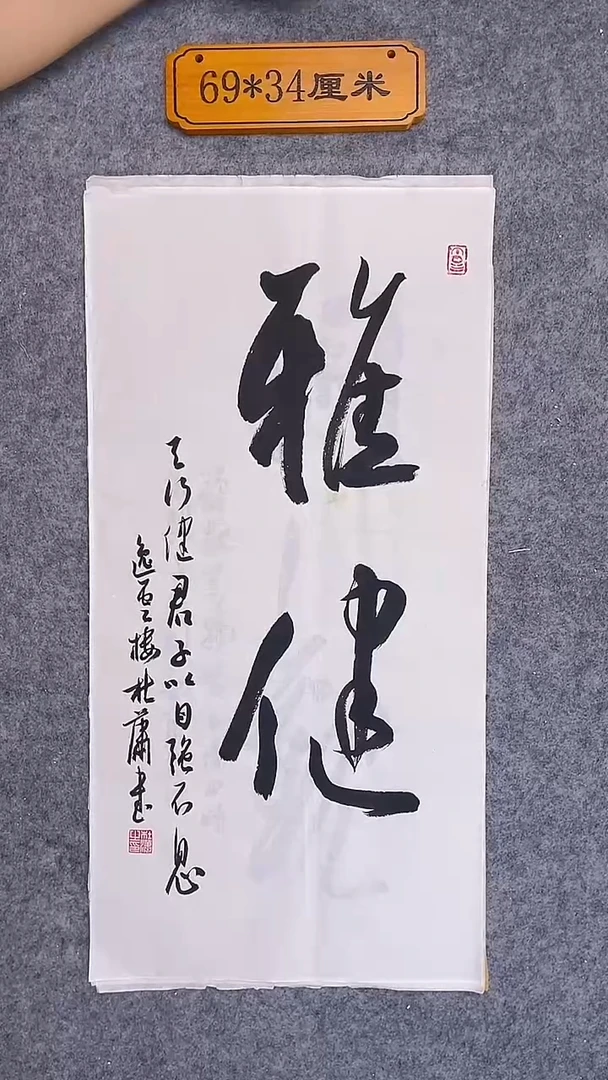 69*34厘米
雅健
天行健君子以自强不息
逸雲楼杜萧书